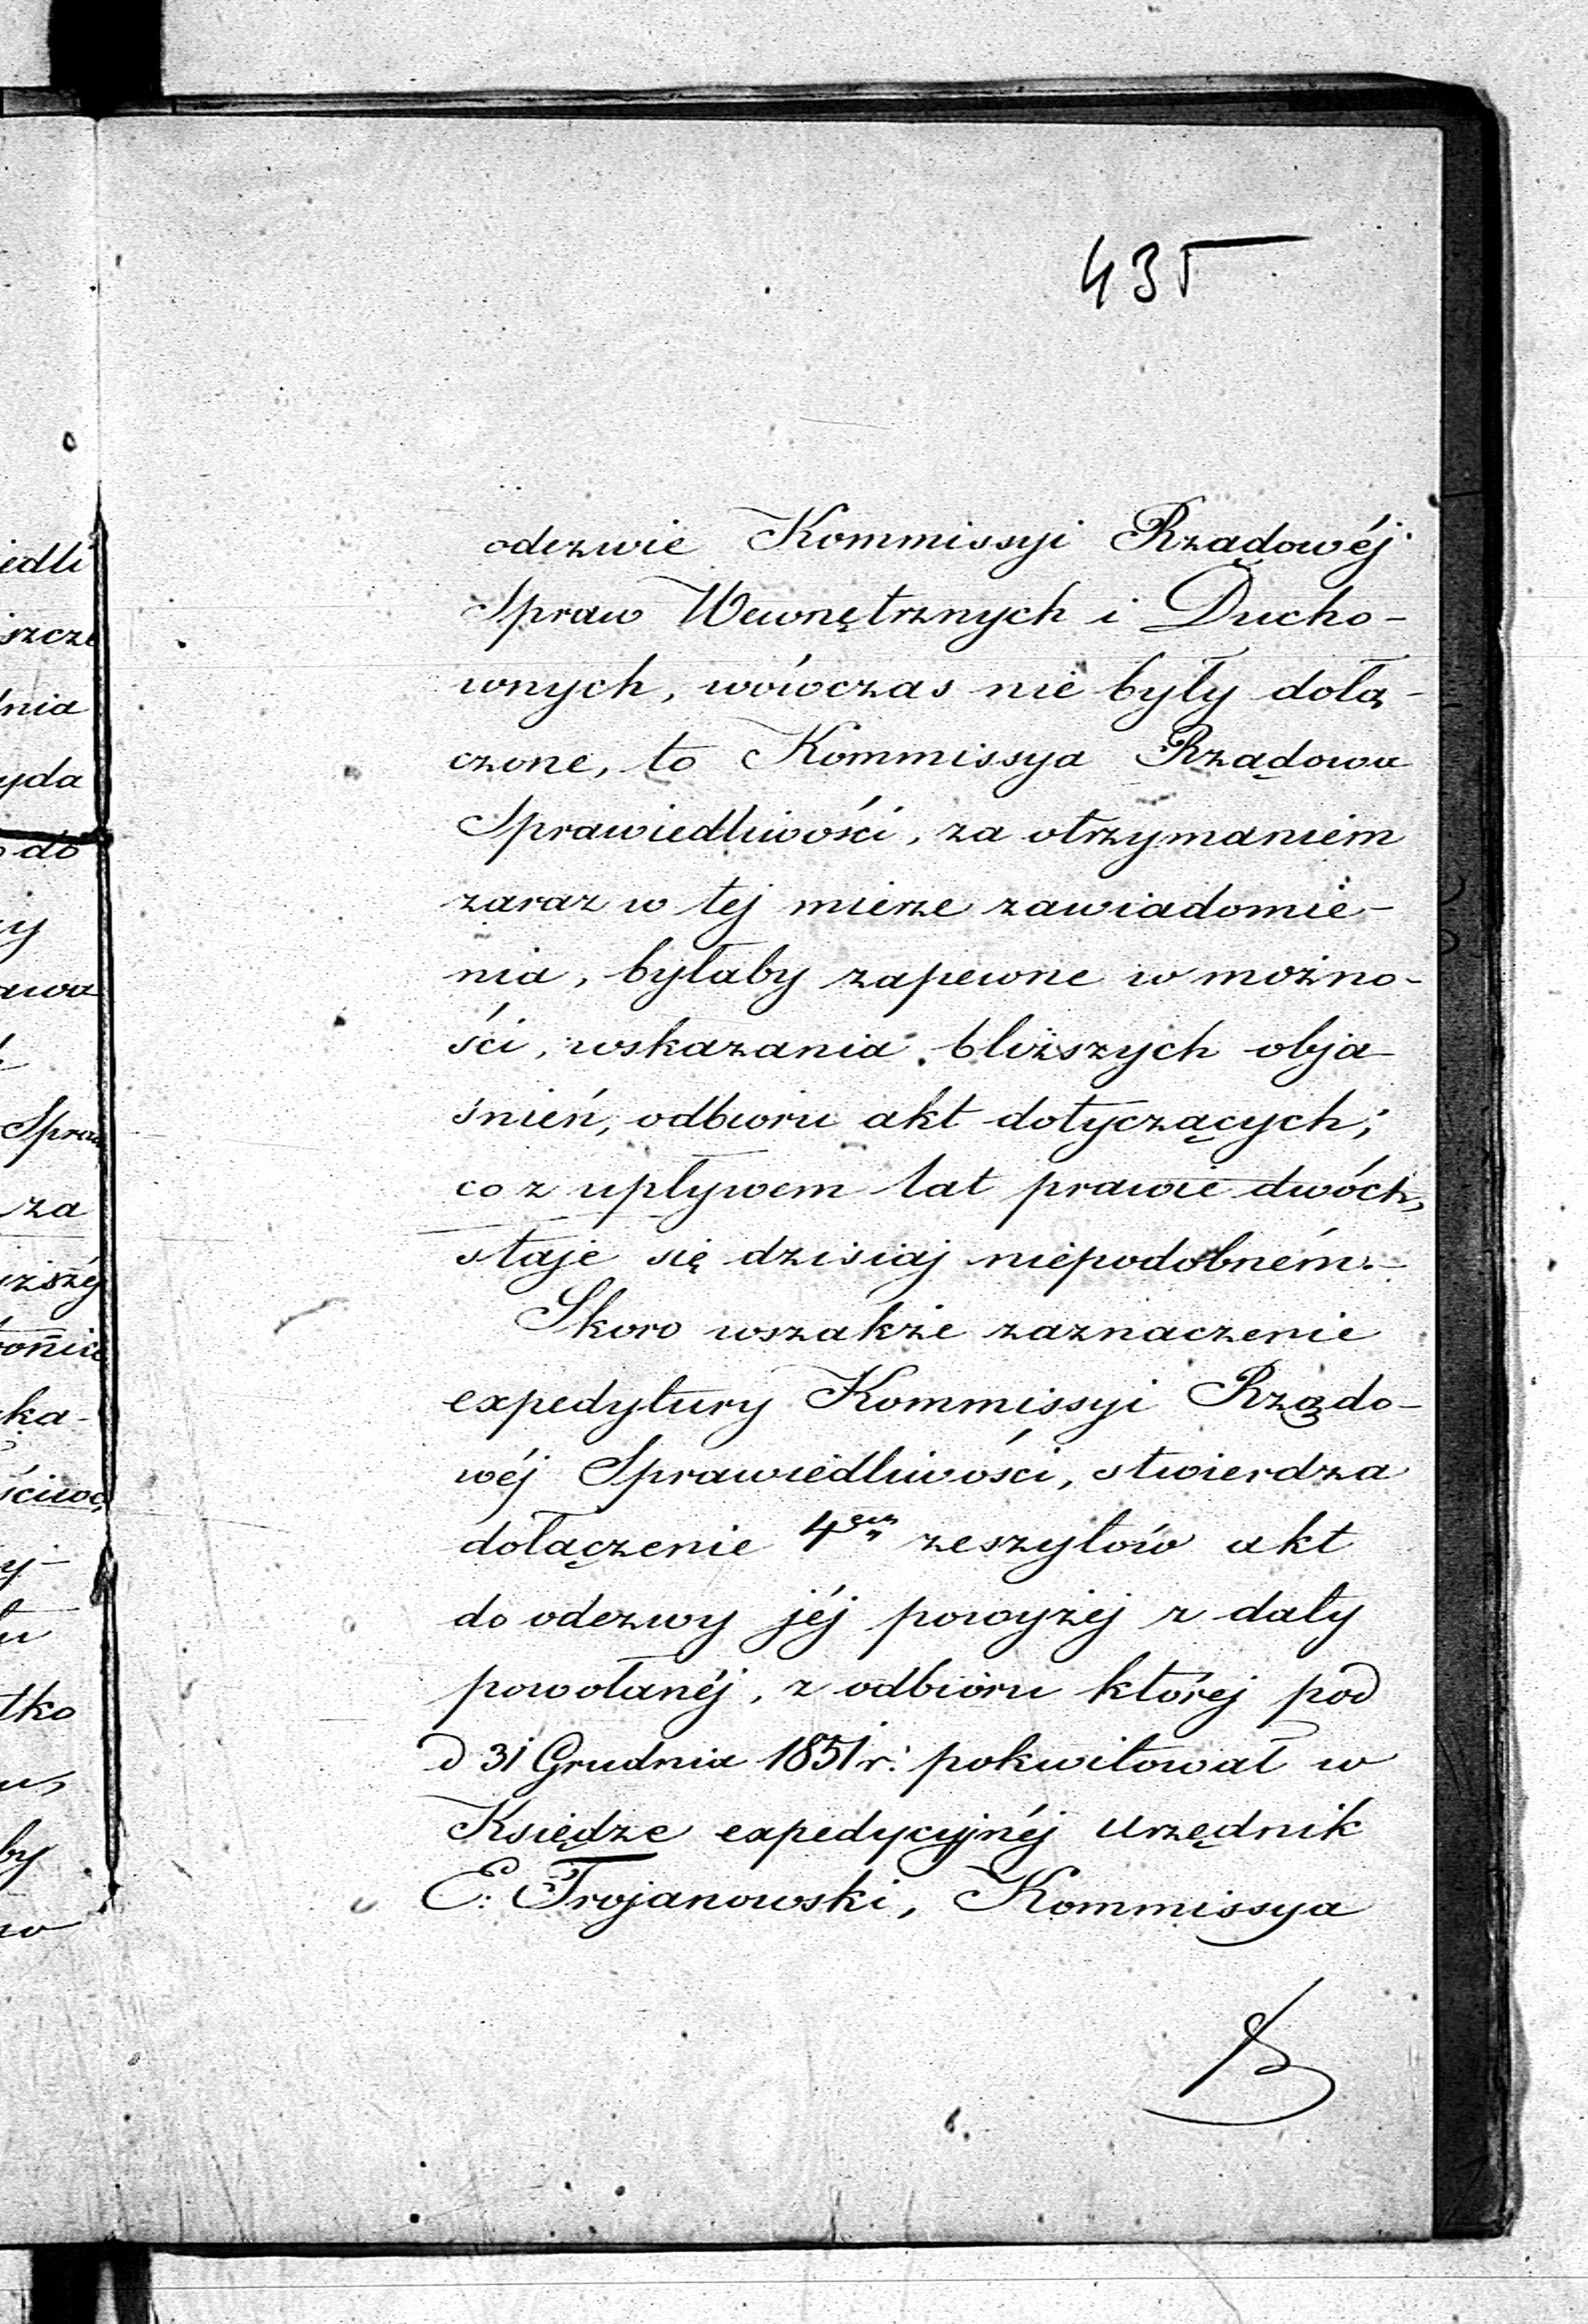 435
odezwie Kommissyi Rządowéj
Spraw Wewnętrznych i Ducho-
wnych, wówczas nie były dołą-
czone, to Kommissya Rządowa
Sprawiedliwości, za otrzymaniem
zaraz w tej mierze zawiadomie-
nia, byłaby zapewne w możno-
ści, wskazania bliższych obja-
śnień, odbioru akt dotyczących;
co z upływem lat prawie dwóch,
staje się dzisiaj niepodobném.-
Skoro wszakże zaznaczenie
expedytury Kommissyi Rządo-
wéj Sprawiedliwości, stwierdza
dołączenie 4ech zeszytów akt
do odezwy jéj powyżej z daty
powołanéj, z odbioru której pod
d 31 Grudnia 1851 r: pokwitował w
Księdze expedycyjnéj urzędnik
E. Trojanowski, Kommissya